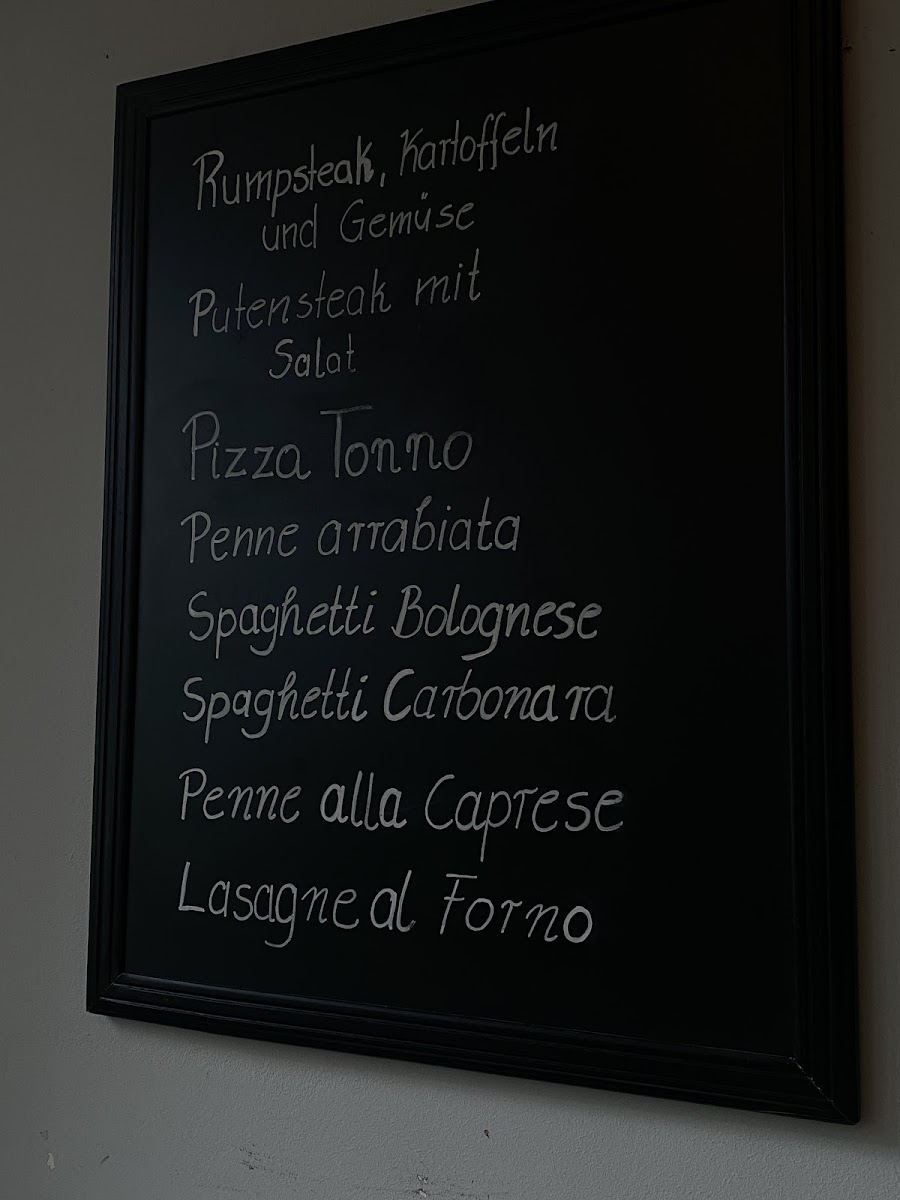 Rumpsteak, Kartoffeln
und Gemüse
Putensteak mit
Salat
Pizza Tonno
Penne arrabiata
Spaghetti Bolognese
Spaghetti Carbonara
Penne alla Caprese
Lasagne al Forno